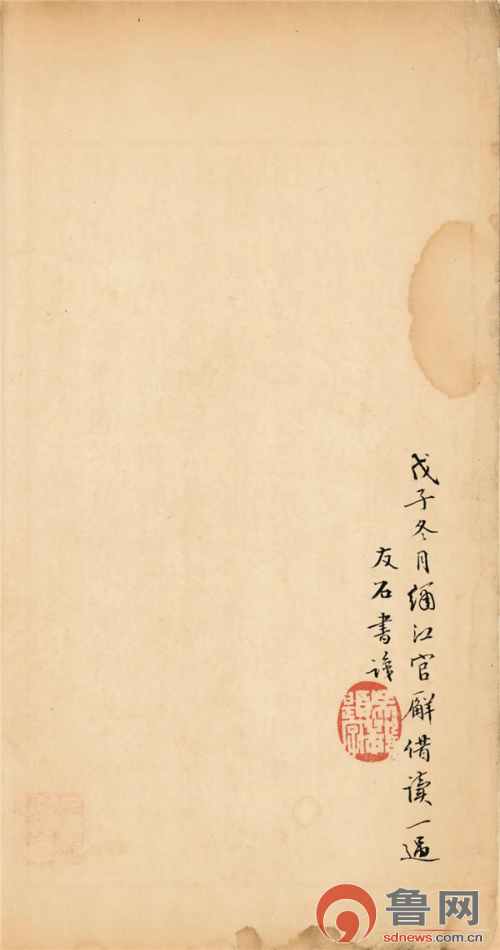 戊子冬月繡江官廨借读一過
友石書識
鲁网
sdnews.com.cn